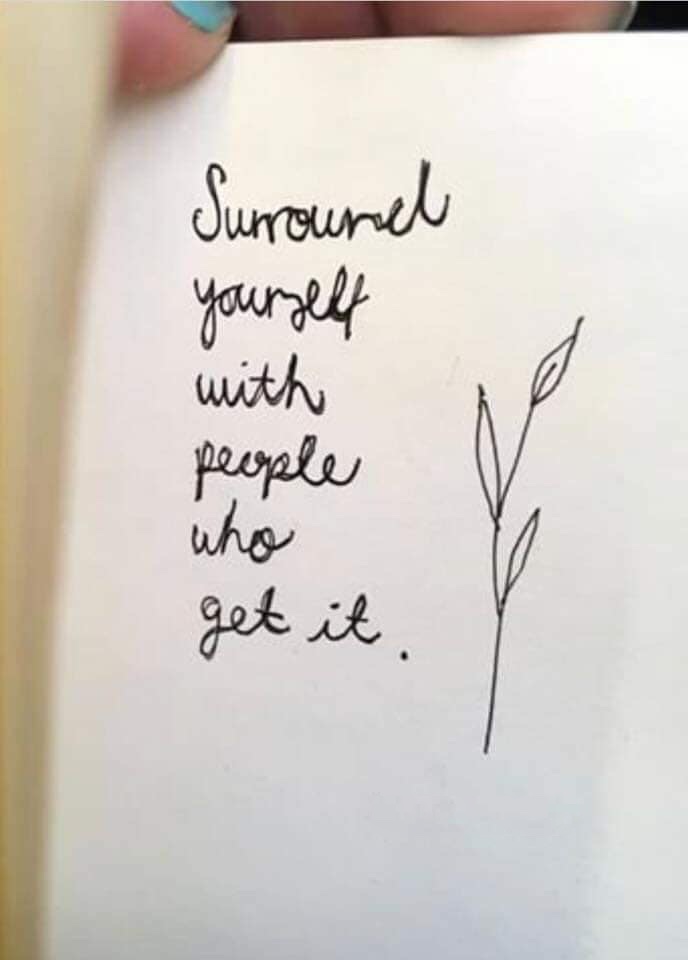 Surround
yourself
with
people
who
get it.